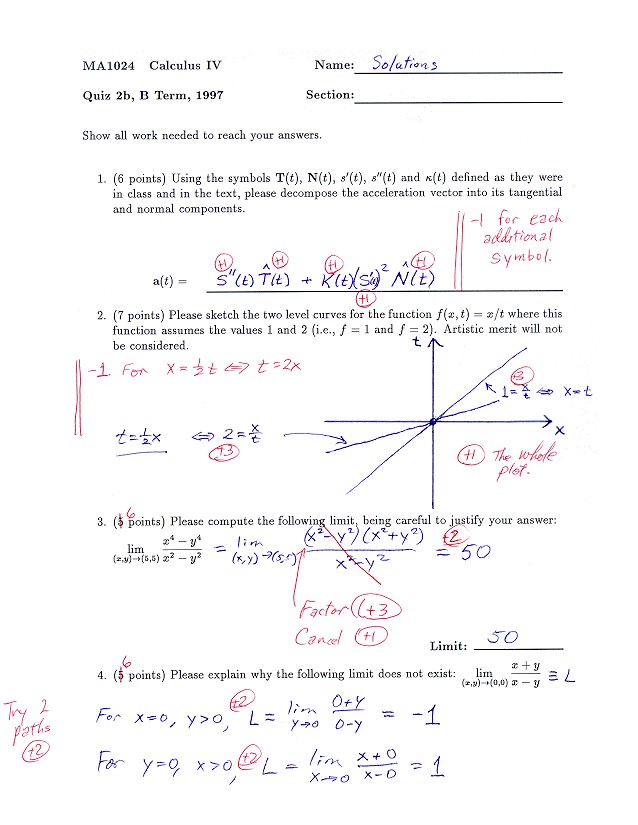 MA1024 Calculus IV Name: Solutions
Quiz 2b, B Term, 1997 Section:
Show all work needed to reach your answers.
1. (6 points) Using the symbols T(t), N(t), s′(t), s″(t) and κ(t) defined as they were
in class and in the text, please decompose the acceleration vector into its tangential
and normal components.
-1 for each
additional
symbol.
+1 +1 +1 +1
a(t) = S″(t) T̂(t) + K(t)(S′(t))² N̂(t)
+1
2. (7 points) Please sketch the two level curves for the function f(x, t) = x/t where this
function assumes the values 1 and 2 (i.e., f = 1 and f = 2). Artistic merit will not
be considered.
t
-1 For x = ½t ⟺ t = 2x
+3
1 = x/t ⟺ x = t
t = ½x ⟺ 2 = x/t
+3
x
+1 The whole
plot.
3. (5 6 points) Please compute the following limit, being careful to justify your answer:
lim (x,y)→(5,5) x⁴ − y⁴ / x² − y² = lim (x,y)→(5,5) (x²−y²)(x²+y²) / x²−y² = 50 +2
Factor +3
Cancel +1
Limit: 50
4. (5 6 points) Please explain why the following limit does not exist: lim (x,y)→(0,0) x + y / x − y ≡ L
Try 2
paths
+2
For x=0, y>0, +2 L = lim y→0 0+y / 0−y = −1
For y=0, x>0, +2 L = lim x→0 x+0 / x−0 = 1